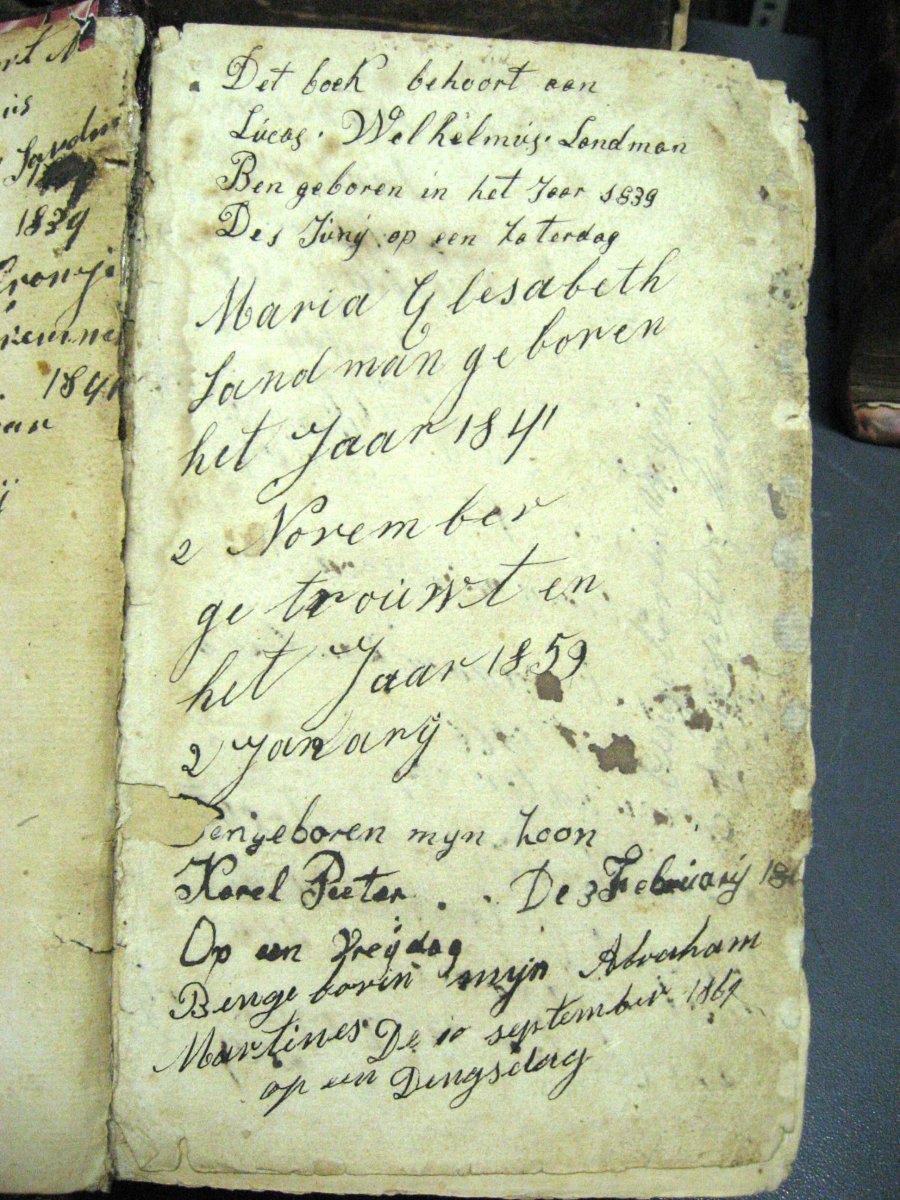 is
1839
184
Det boek behoort aan
Lucas. Welhelmus. Landman
Ben geboren in het Jaar 1839
De 1 Junÿ op een Zaterdag
Maria Elesabeth
Landman geboren
het Jaar 1841
2 November
ge trouwt en
het Jaar 1859
2 Janarÿ
geboren myn Zoon
Karel Pieter . . De 3 Februarÿ 18
Op een Vreÿdag
Bengeboren mÿn Abraham
Martines De 10 september
op een Dingsdag